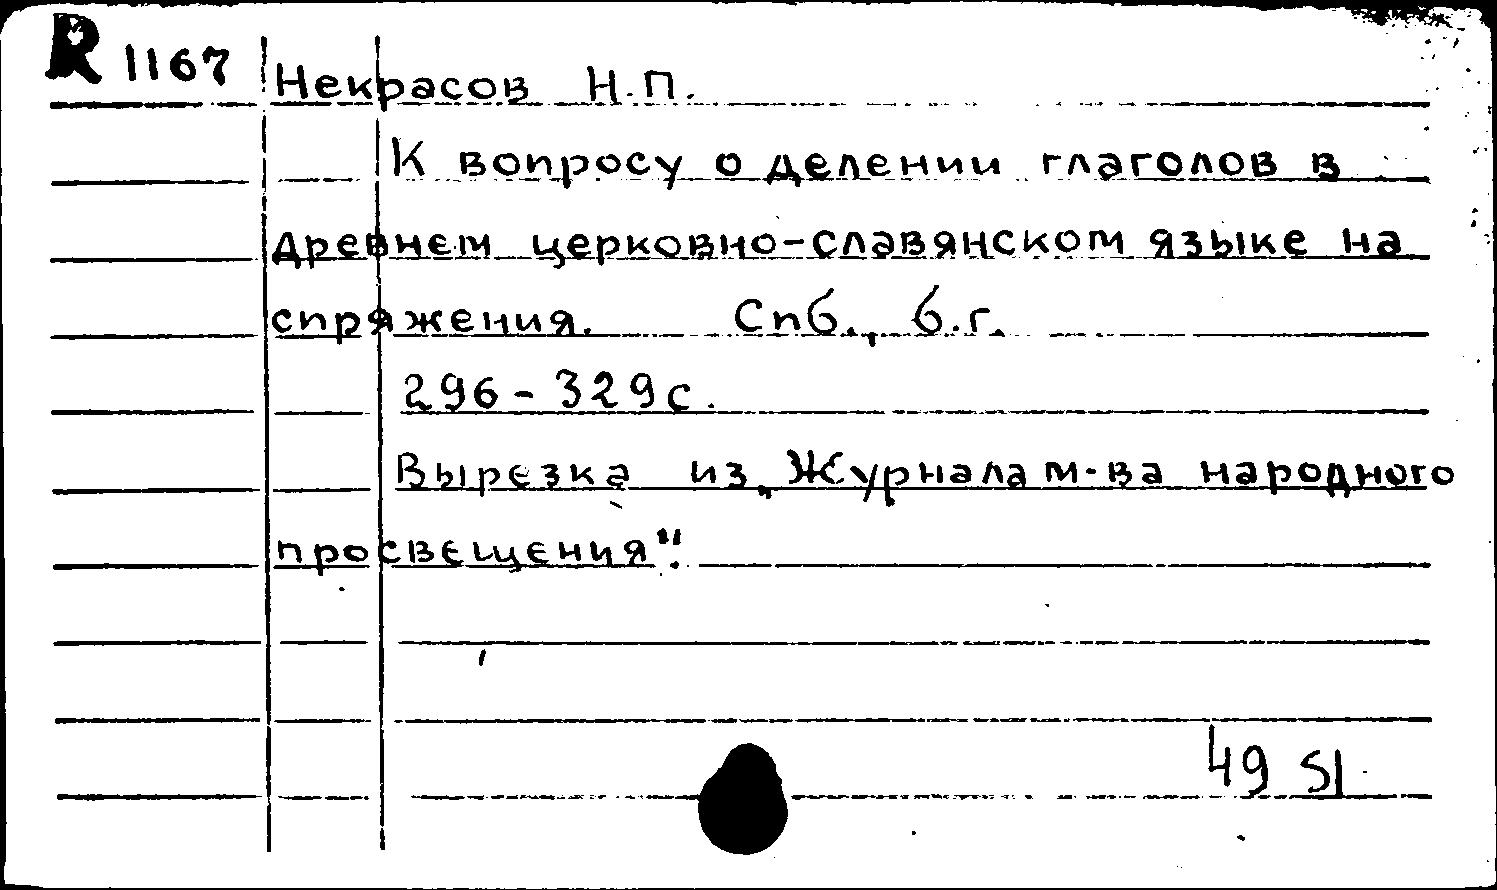 R 1167 Некрасов Н.П.
К вопросу о делении глаголов в
древнем церковно-славянском языке на
спряжения. Спб., б.г.
296-329с.
Вырезка из „Журнала м-ва народного
просвещения".
49 Sl